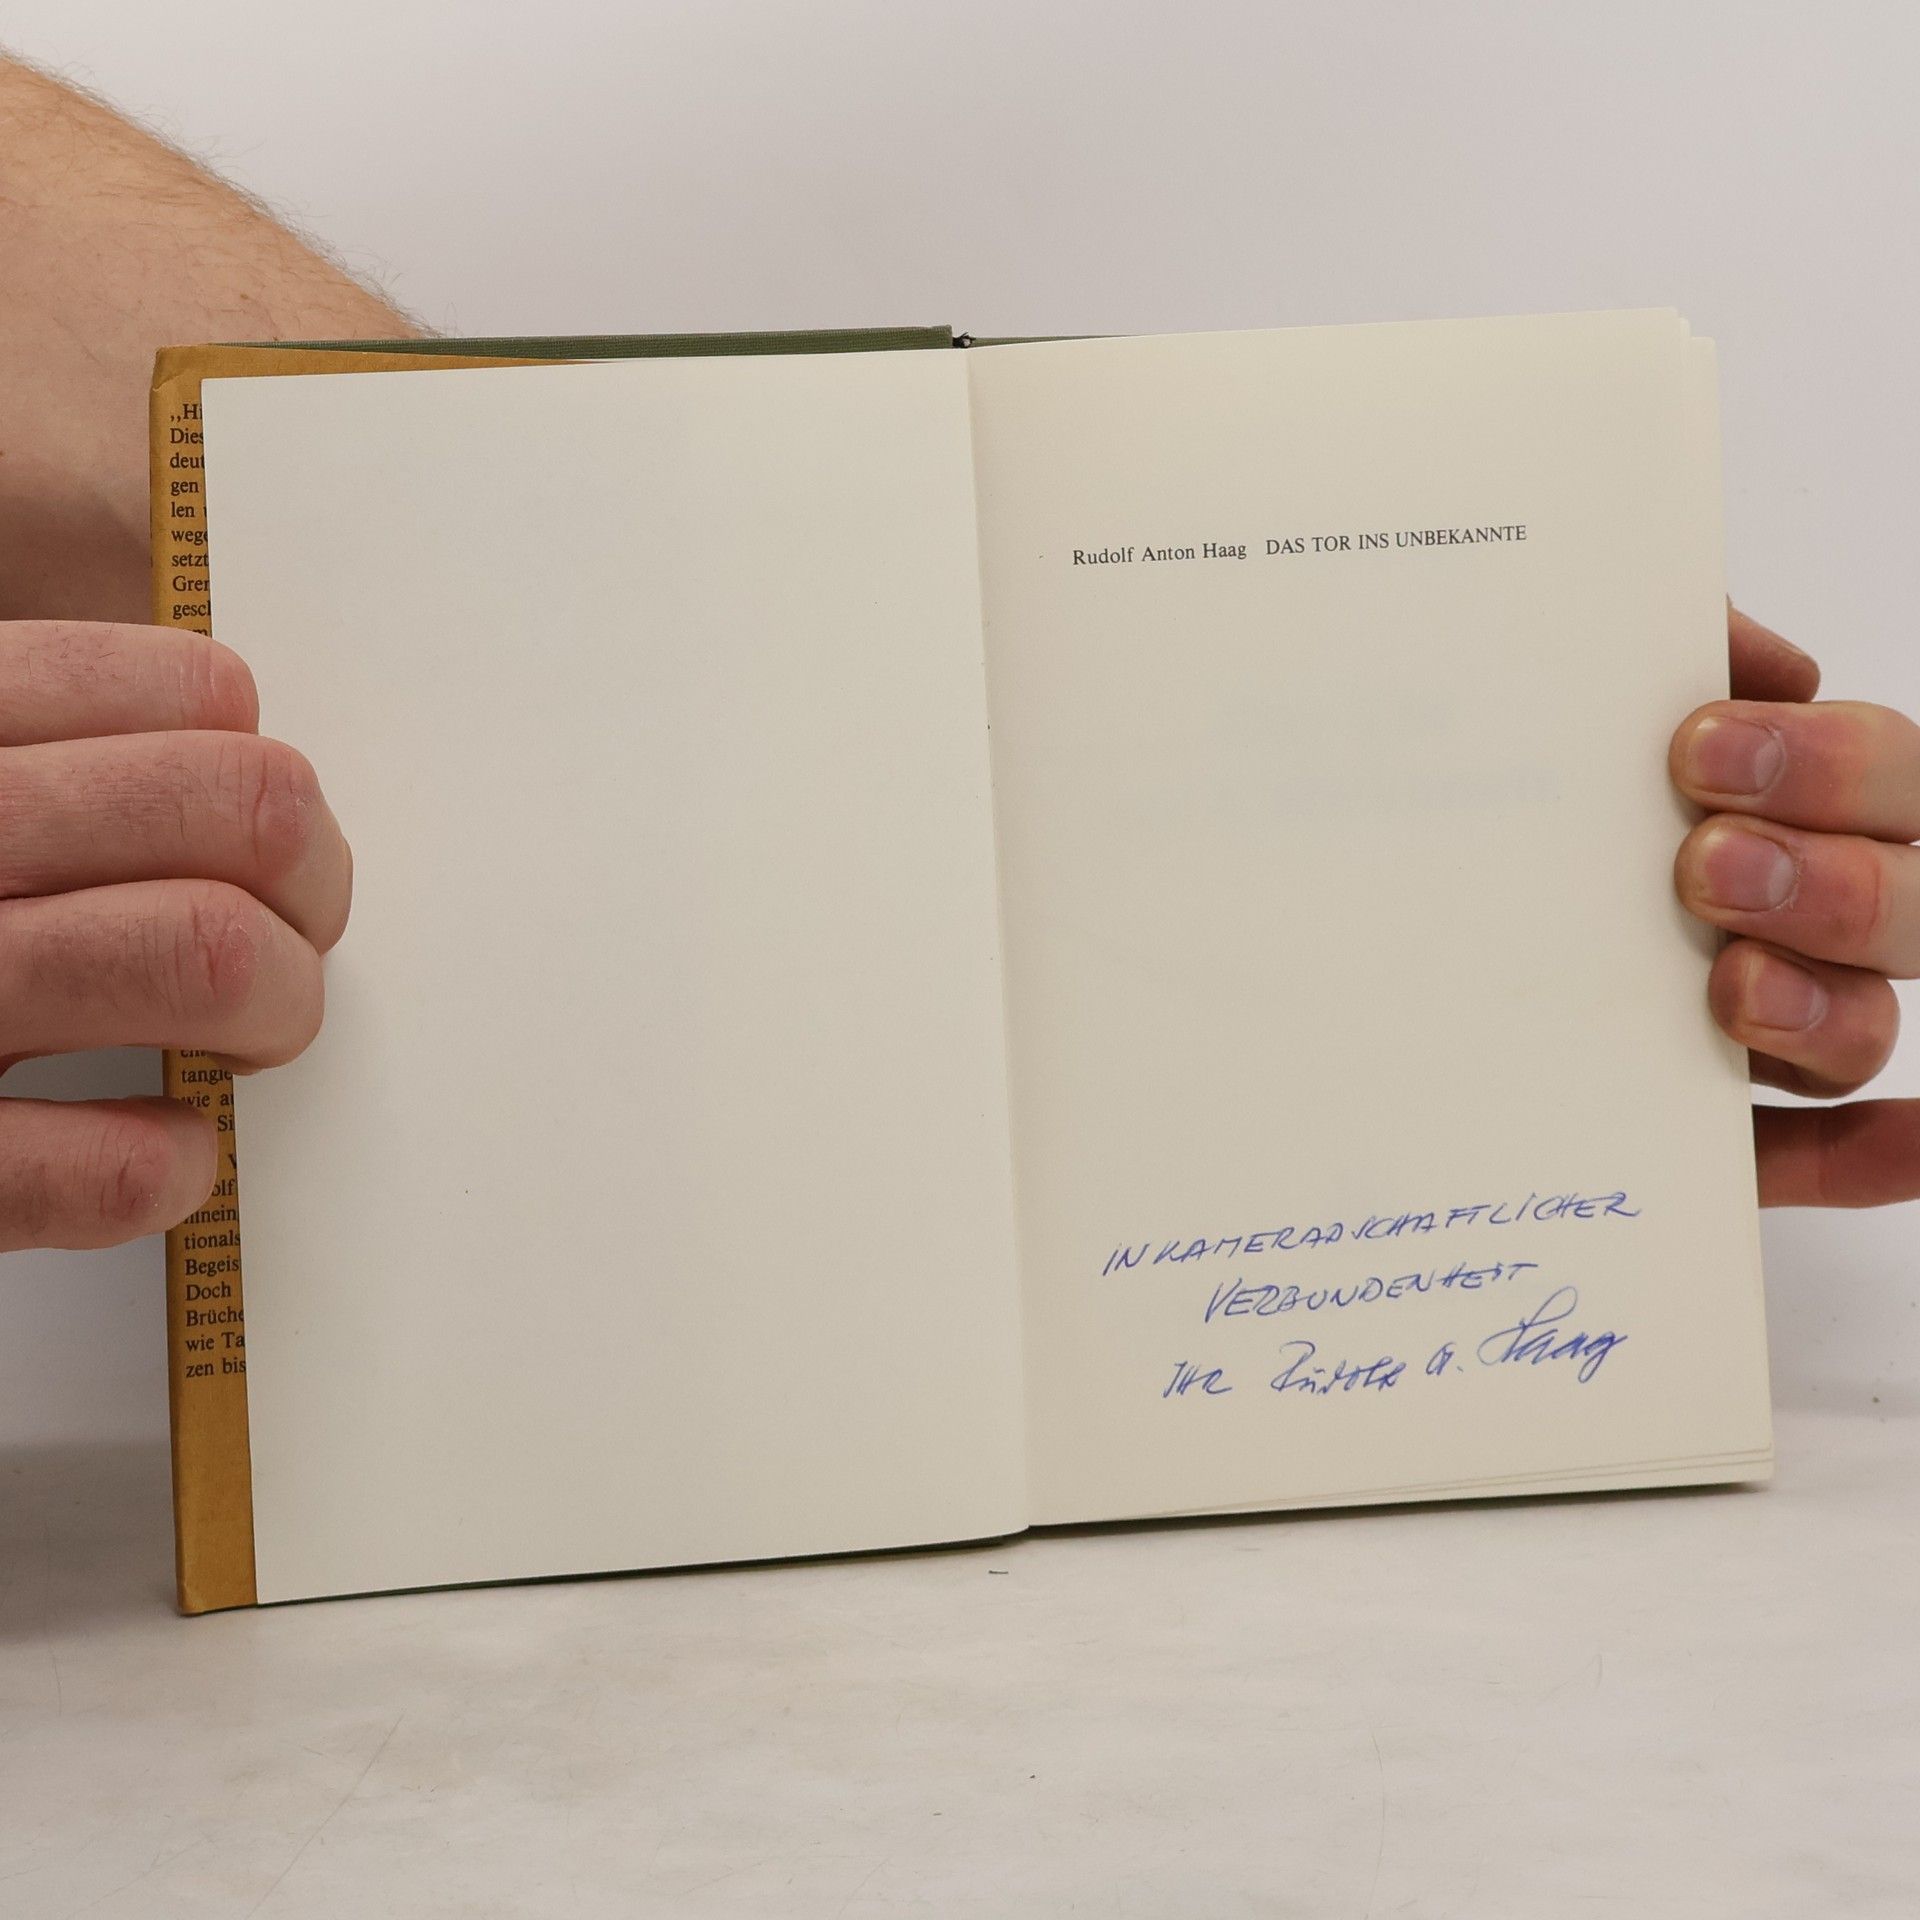 „Hi
Dies
deut
gen
len
wege
setzt
Gren
gesch
tangie
wie au
Si
V
olf
hinein
tionals
Begeis
Doch
Brüche
wie Ta
zen bis
Rudolf Anton Haag DAS TOR INS UNBEKANNTE
IN KAMERADSCHAFTLICHER
VERBUNDENHEIT
IHR Rudolf A. Haag